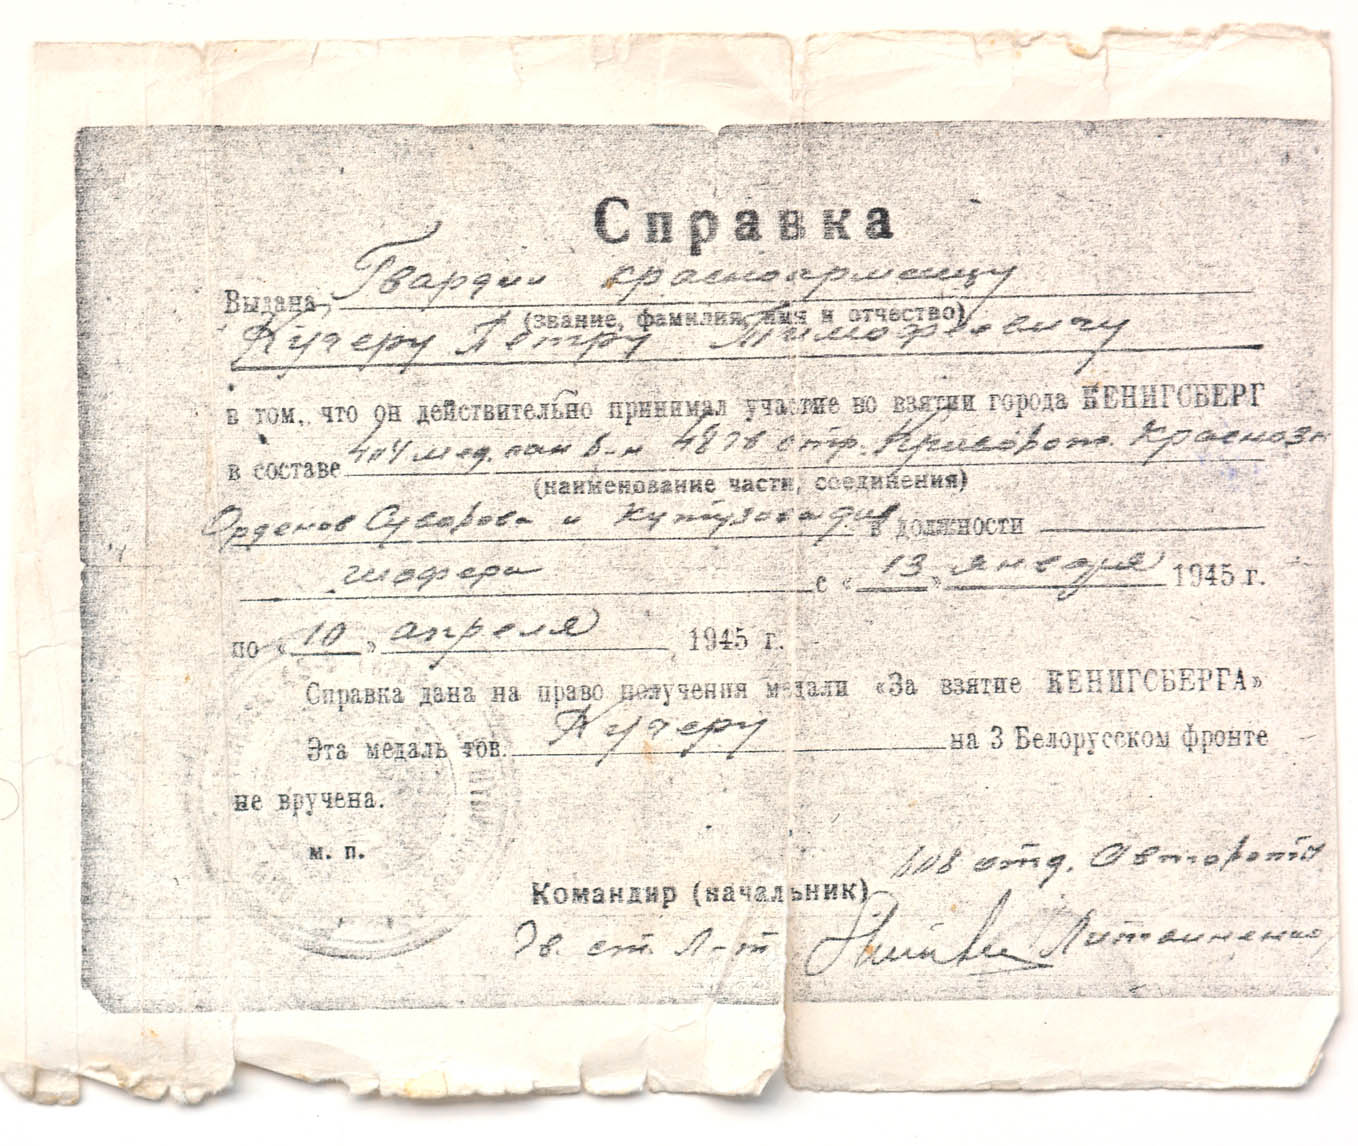 Справка
Выдана Гвардии красноармейцу
(звание, фамилия, имя и отчество)
Кучеру Петру Тимофеевичу
в том, что он действительно принимал участие во взятии города КЕНИГСБЕРГ
в составе стр. Краснозн
(наименование части, соединения)
Орденов Суворова и Кутузова див в должности
шофера с « 13 » января 1945 г.
по « 10 » апреля 1945 г.
Справка дана на право получения медали «За взятие КЕНИГСБЕРГА»
Эта медаль тов. Кучеру на 3 Белорусском фронте
не вручена.
м. п.
608 отд. Автороты
Командир (начальник)
Гв. ст. Л-т Литвиненко